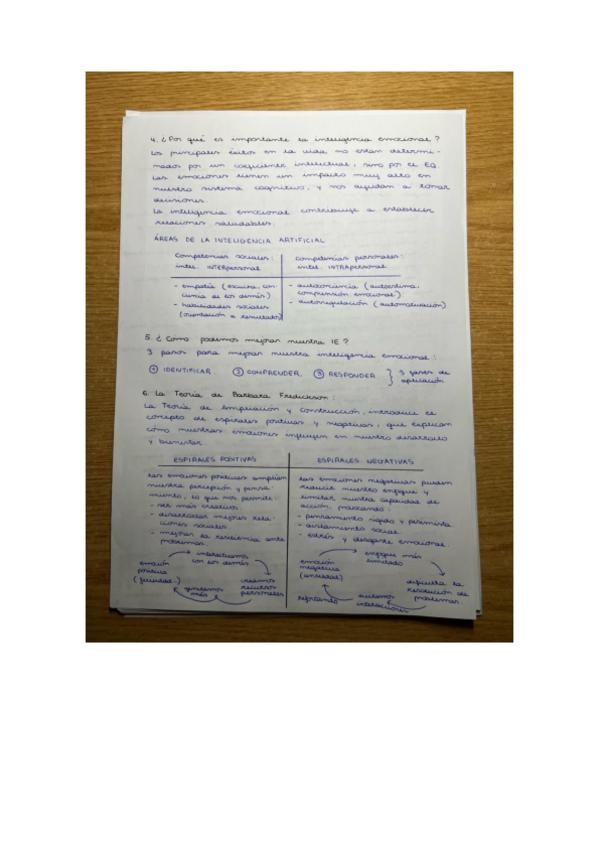 4. ¿Por qué es importante la inteligencia emocional?
Los principales éxitos en la vida no están determi-
nados por un coeficiente intelectual, sino por el EQ.
Las emociones tienen un impacto muy alto en
nuestro sistema cognitivo, y nos ayudan a tomar
decisiones.
La inteligencia emocional contribuye a establecer
relaciones saludables.
ÁREAS DE LA INTELIGENCIA ARTIFICIAL
Competencias sociales:
intel. INTERpersonal
- empatía (escucha, con-
ciencia de los demás)
- habilidades sociales
(orientación a resultados)
Competencias personales:
intel. INTRApersonal
- autoconciencia (autoestima,
comprensión emocional)
- autorregulación (automotivación)
5. ¿Cómo podemos mejorar nuestra IE?
3 pasos para mejorar nuestra inteligencia emocional:
1 IDENTIFICAR 2 COMPRENDER 3 RESPONDER } 3 fases de
aplicación
6. La Teoría de Barbara Fredickson:
La Teoría de Ampliación y Construcción, introduce el
concepto de espirales positivas y negativas, que explican
cómo nuestras emociones influyen en nuestro desarrollo
y bienestar
ESPIRALES POSITIVAS
Las emociones positivas amplían
nuestra percepción y pensa-
miento, lo que nos permite:
- ser más creativos
- desarrollar mejores rela-
ciones sociales
- mejorar la resiliencia ante
problemas.
interactuamos
con los demás
emoción
positiva
creamos
recursos
personales
generamos
más
ESPIRALES NEGATIVAS
Las emociones negativas pueden
reducir nuestro enfoque y
limitar nuestra capacidad de
acción, provocando:
- pensamiento rígido y pesimista
- aislamiento social
- estrés y desgaste emocional.
enfoque más
limitado
emoción
negativa
(ansiedad)
dificulta la
resolución de
problemas.
evitamos
interacciones